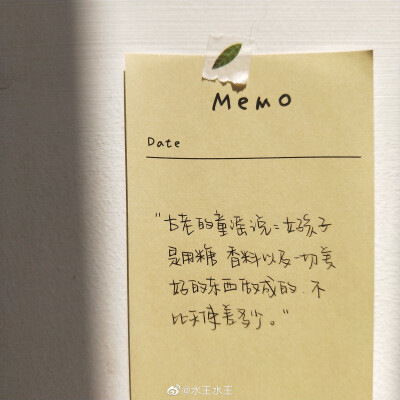 MEMO
Date
“古老的童谣说：女孩子
是用糖 香料以及一切美
好的东西做成的.不
比天使差多少。”
@水王水王